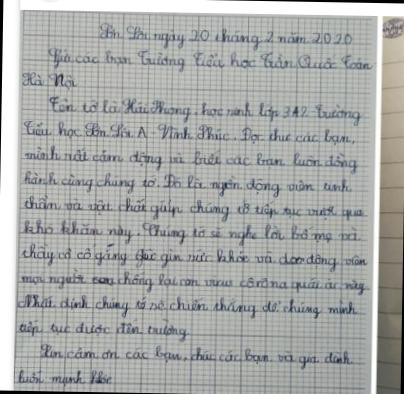 Sơn Lôi ngày 20 tháng 2 năm 2020
Gửi các bạn Trường Tiểu học Trần Quốc Toản
Hà Nội
Tên tớ là Hải Phong, học sinh lớp 3A2 Trường
Tiểu học Sơn Lôi A Vĩnh Phúc. Đọc thư các bạn,
mình rất cảm động và biết các bạn luôn đồng
hành cùng chúng tớ. Đó là nguồn động viên tinh
thần và vật chất giúp chúng tớ tiếp tục vượt qua
khó khăn này. Chúng tớ sẽ nghe lời bố mẹ và
thầy cô cố gắng giữ gìn sức khỏe và động viên
mọi người chống lại con virus côrôna quái ác này
Nhất định chúng tớ sẽ chiến thắng để chúng mình
tiếp tục được đến trường.
Xin cảm ơn các bạn, chúc các bạn và gia đình
luôn mạnh khỏe